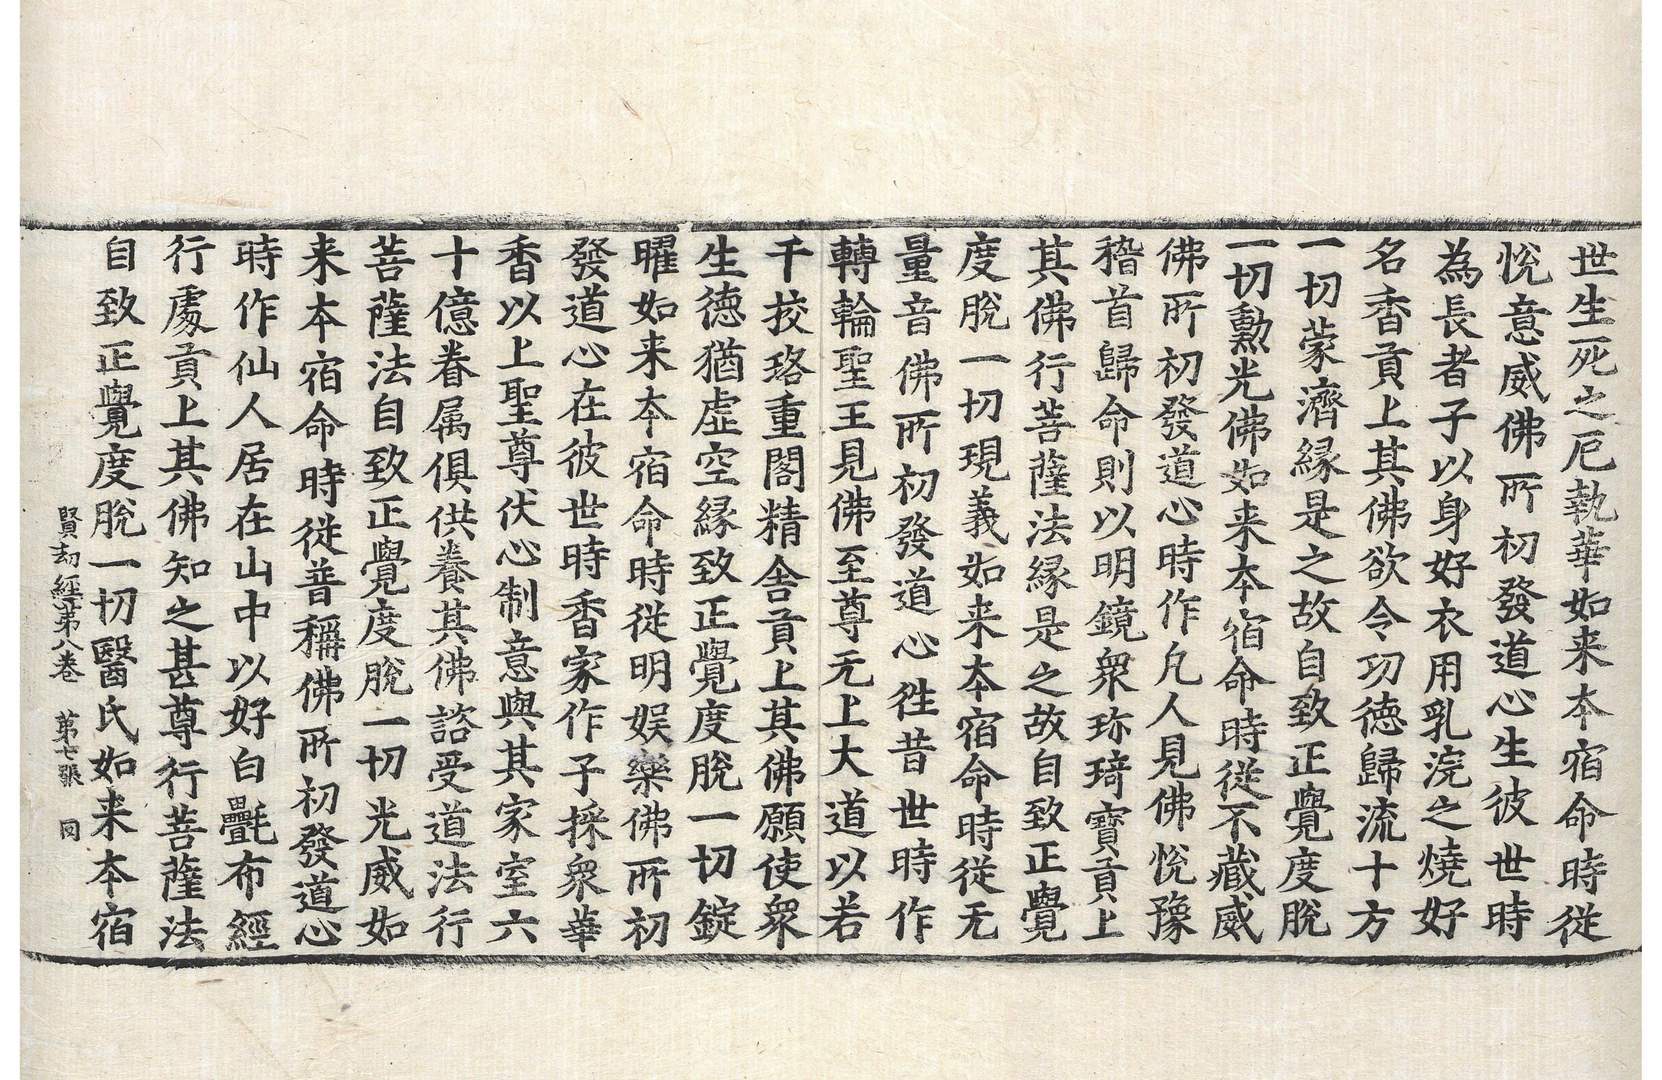 世生死之厄執華如来本宿命時從
悅意威佛所初發道心生彼世時
為長者子以身好衣用乳浣之燒好
名香貢上其佛欲令功德歸流十方
一切蒙濟緣是之故自致正覺度脫
一切勲光佛如来本宿命時從不藏威
佛所初發道心時作凢人見佛悅豫
稽首歸命則以明鏡衆珎琦寶貢上
其佛行菩薩法緣是之故自致正覺
度脫一切現義如来本宿命時從无
量音佛所初發道心徃昔世時作
轉輪聖王見佛至尊无上大道以若
千挍珞重閣精舍貢上其佛願使衆
生德猶虛空緣致正覺度脫一切錠
曜如来本宿命時從明娯樂佛所初
發道心在彼世時香家作子採衆華
香以上聖尊伏心制意與其家室六
十億眷属俱供養其佛諮受道法行
菩薩法自致正覺度脫一切光威如
来本宿命時從普稱佛所初發道心
時作仙人居在山中以好白氎布經
行處貢上其佛知之甚尊行菩薩法
自致正覺度脫一切醫氏如来本宿
賢劫經第八卷 第七張 同